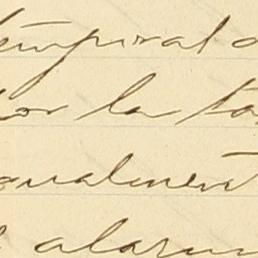 temporal
por la ta
gualment
alarm